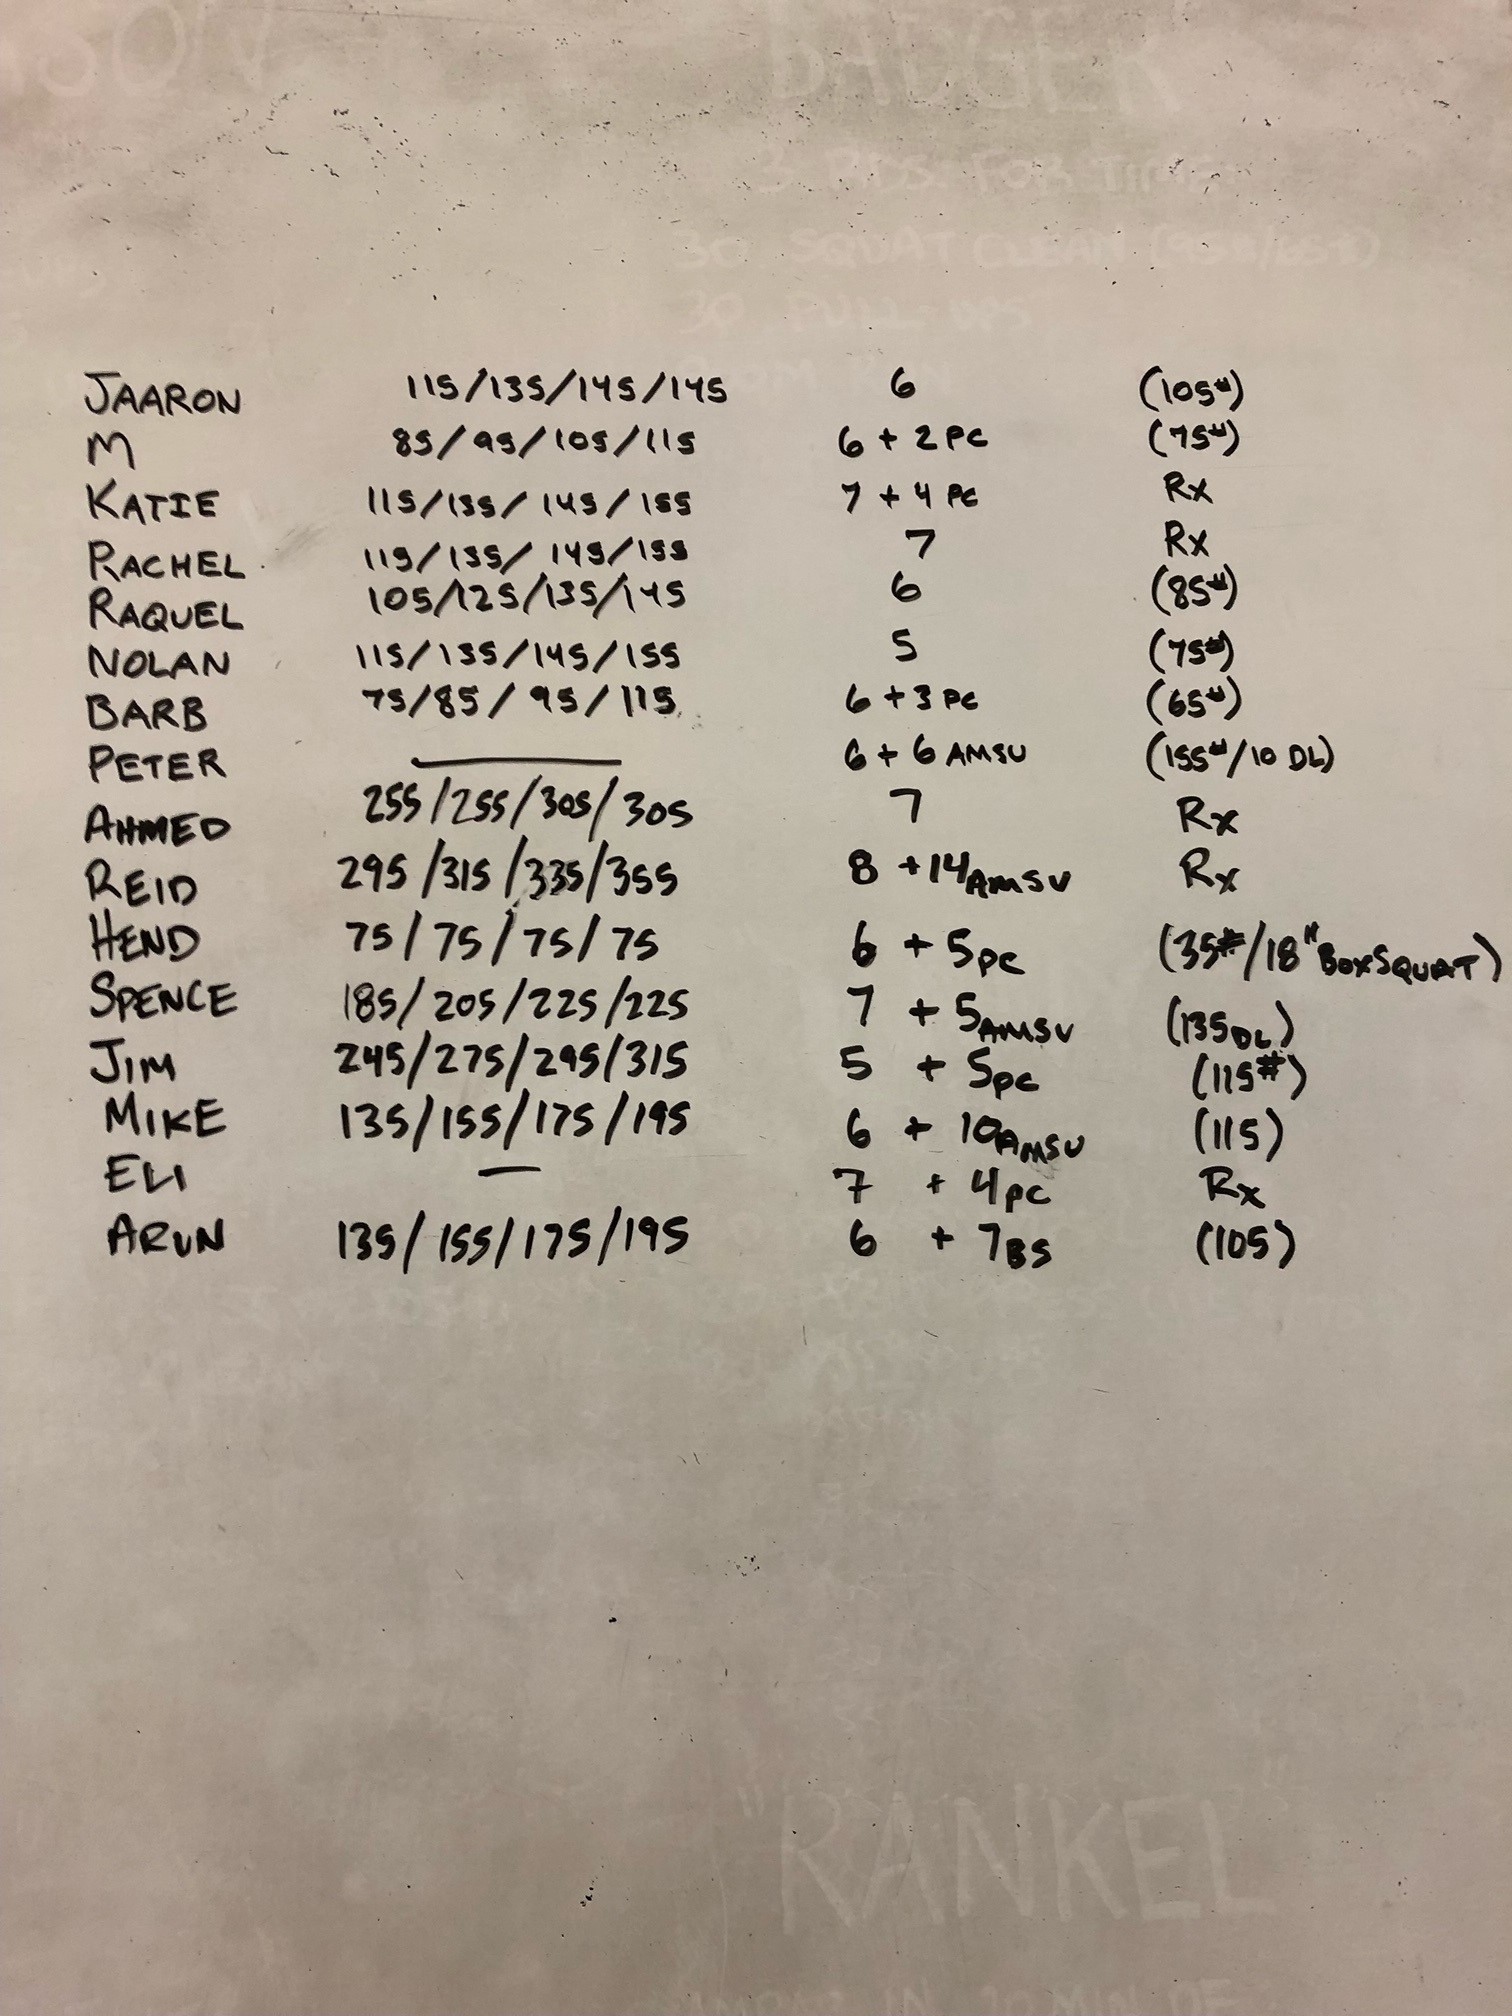 BADGER
3 RDS FOR TIME
30 SQUAT CLEAN (95#/65#)
30 PULL-UPS
JAARON 115/135/145/145 6 (105#)
M 85/95/105/115 6 + 2 PC (75#)
KATIE 115/135/145/155 7 + 4 PC Rx
RACHEL 115/135/145/155 7 Rx
RAQUEL 105/125/135/145 6 (85#)
NOLAN 115/135/145/155 5 (75#)
BARB 75/85/95/115 6 + 3 PC (65#)
PETER — 6 + 6 AMSU (155#/10 DL)
AHMED 255/255/305/305 7 Rx
REID 295/315/335/355 8 + 14 AMSU Rx
HEND 75/75/75/75 6 + 5 PC (35#/18" BOX SQUAT)
SPENCE 185/205/225/225 7 + 5 AMSU (135 DL)
JIM 245/275/295/315 5 + 5 PC (115#)
MIKE 135/155/175/195 6 + 10 AMSU (115)
ELI — 7 + 4 PC Rx
ARUN 135/155/175/195 6 + 7 BS (105)
"RANKEL"
IN 20 MIN OF